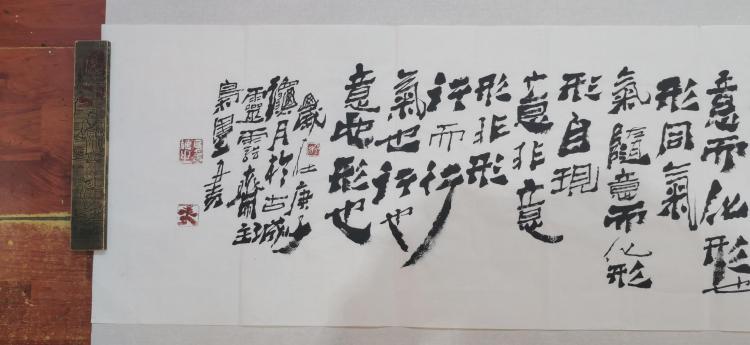 意而化形也
形同氣
氣隨意而化形
形自現
意非意
形非形
行而行
氣也行也
意也形也
歲在庚子
月於古城
靈雲齋主
墨書